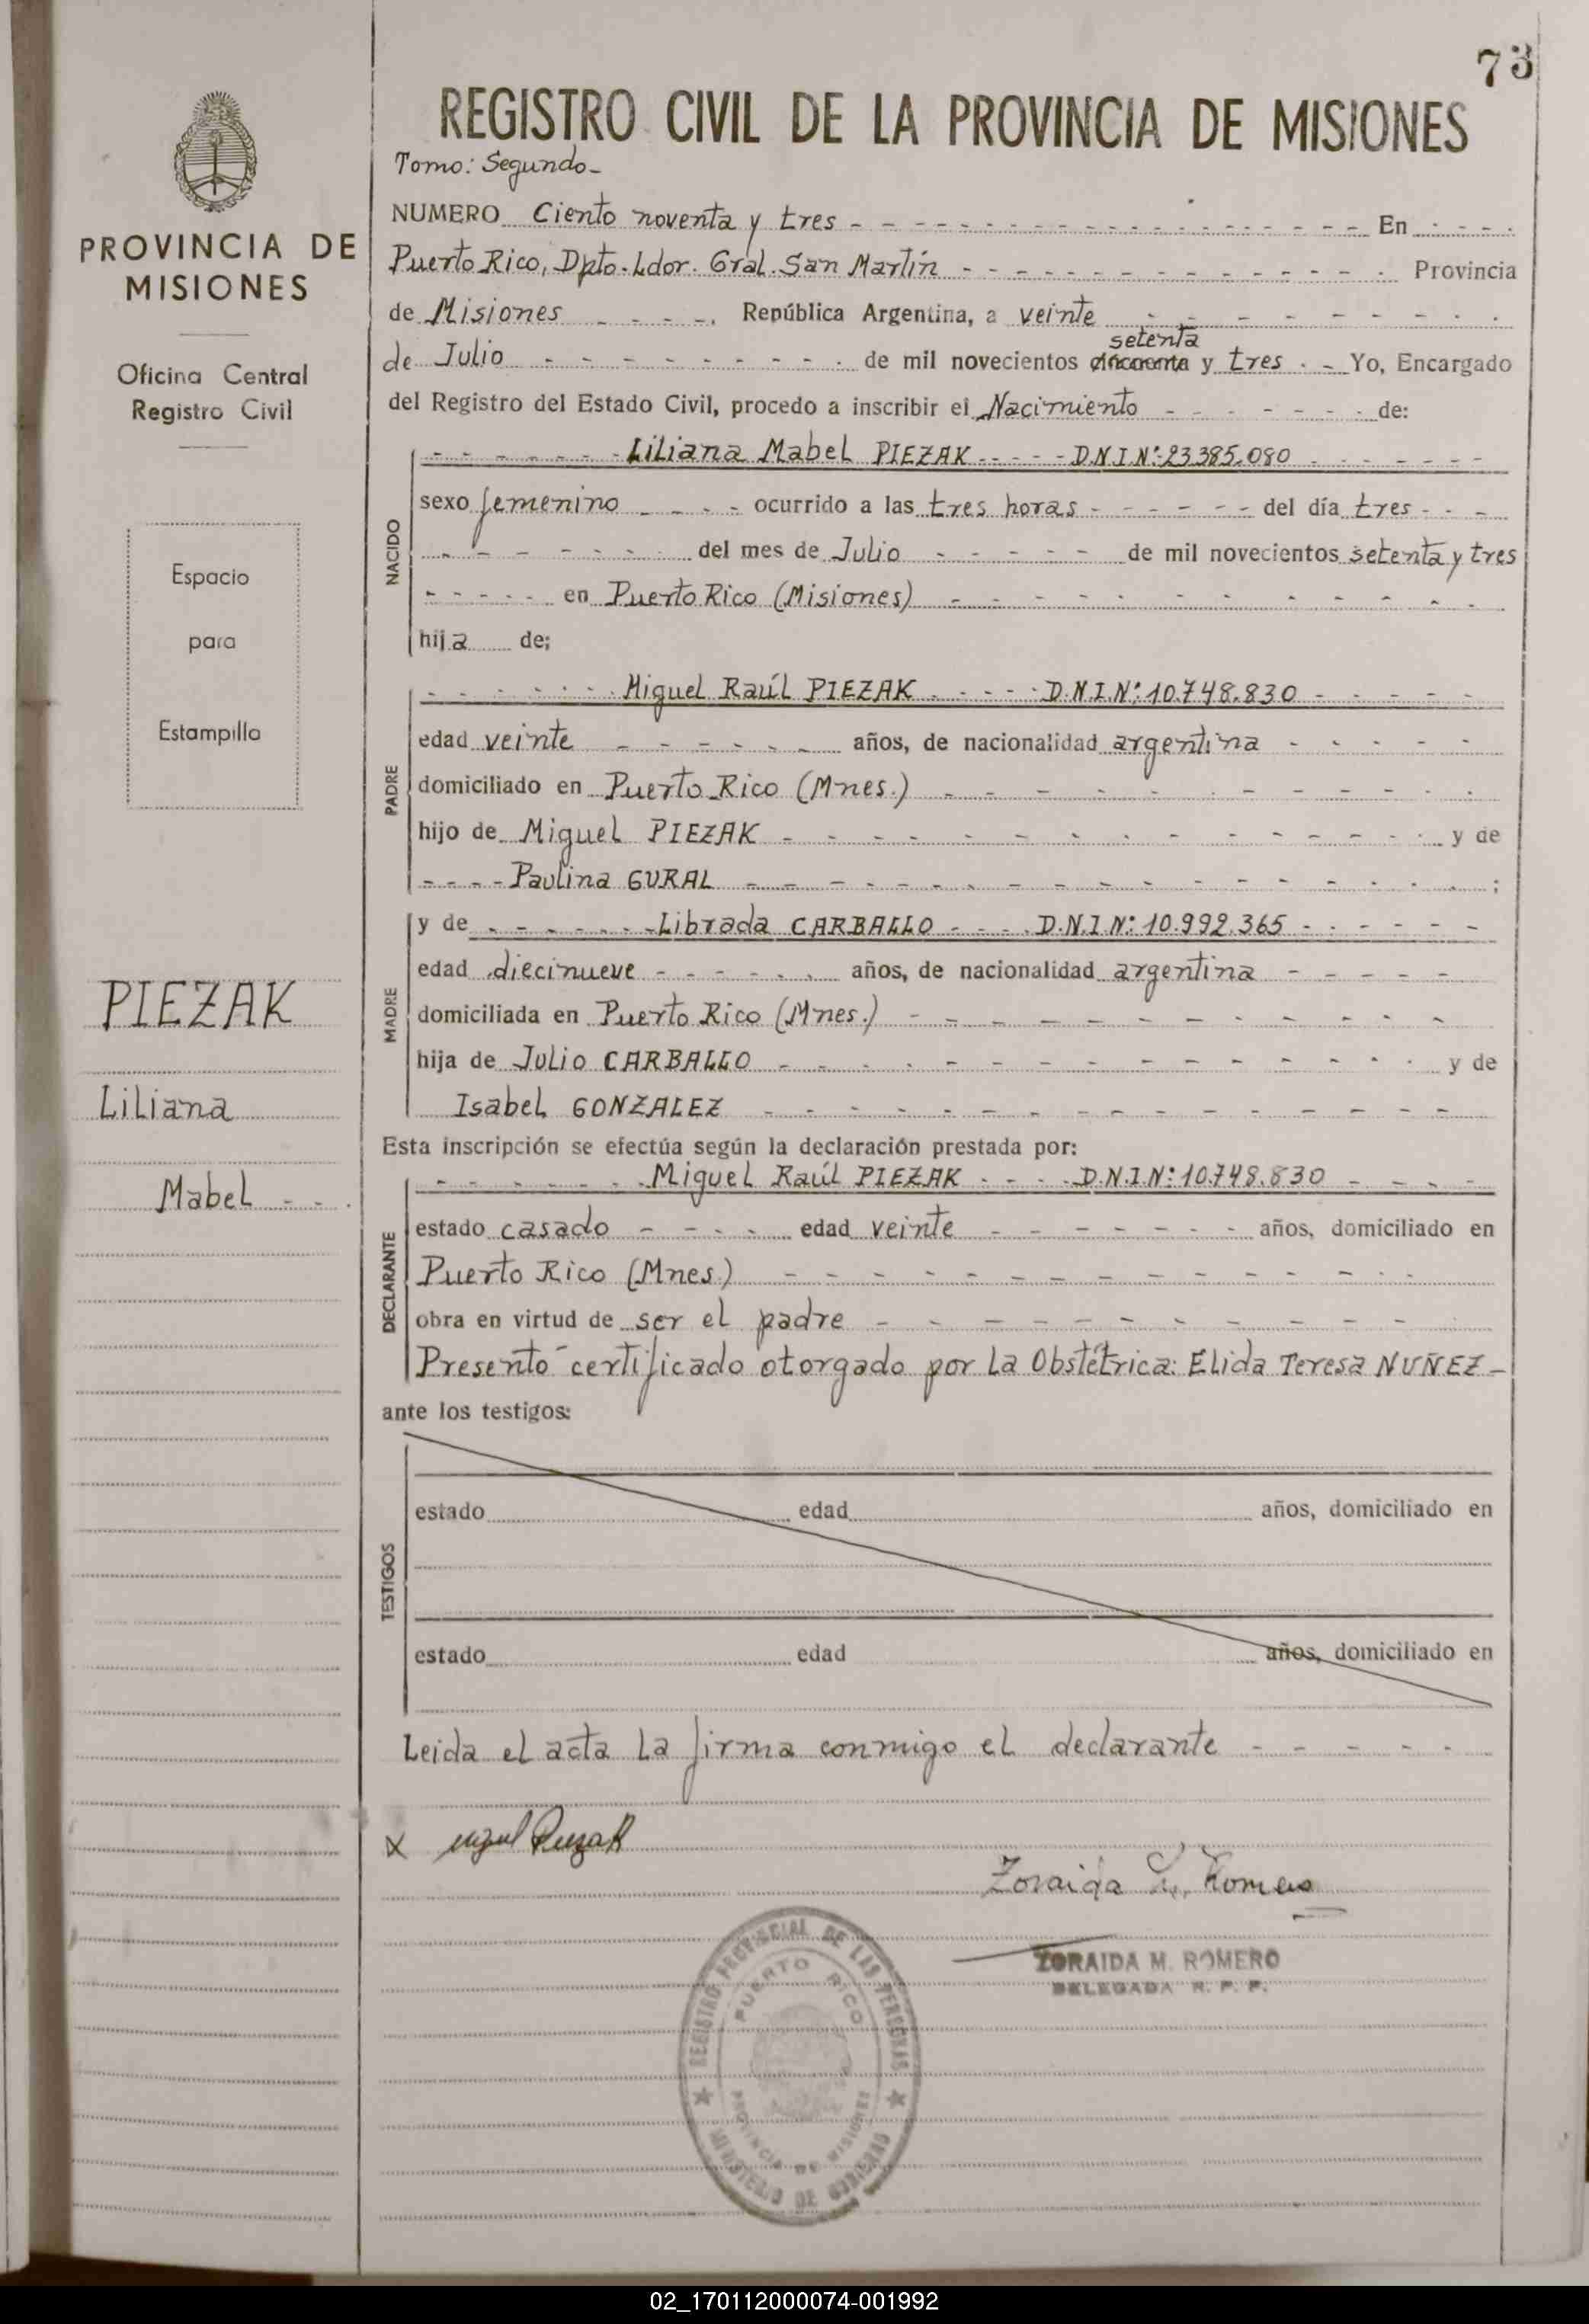 73
REGISTRO CIVIL DE LA PROVINCIA DE MISIONES
Tomo: Segundo-
NUMERO Ciento noventa y tres - En
Puerto Rico, Dpto. Ldor. Gral. San Martín - Provincia
de Misiones - República Argentina, a veinte
setenta
de Julio - de mil novecientos cincuenta y tres - Yo, Encargado
del Registro del Estado Civil, procedo a inscribir el Nacimiento - de:
NACIDO
Liliana Mabel PIEZAK - D.N.I.Nº:23.385.080
sexo femenino - ocurrido a las tres horas - del día tres
del mes de Julio - de mil novecientos setenta y tres
en Puerto Rico (Misiones)
hija de;
PADRE
Miguel Raúl PIEZAK - D.N.I.Nº:10.748.830
edad veinte - años, de nacionalidad argentina
domiciliado en Puerto Rico (Mnes.)
hijo de Miguel PIEZAK - y de
Paulina GURAL - ;
MADRE
y de Librada CARBALLO - D.N.I.Nº:10.992.365
edad diecinueve - años, de nacionalidad argentina
domiciliada en Puerto Rico (Mnes.)
hija de Julio CARBALLO - y de
Isabel GONZALEZ
Esta inscripción se efectúa según la declaración prestada por:
DECLARANTE
Miguel Raúl PIEZAK - D.N.I.Nº:10.748.830
estado casado - edad veinte - años, domiciliado en
Puerto Rico (Mnes.)
obra en virtud de ser el padre
Presentó certificado otorgado por la Obstétrica: Elida Teresa NUÑEZ-
ante los testigos:
TESTIGOS
estado edad años, domiciliado en
estado edad años, domiciliado en
Leida el acta la firma conmigo el declarante
X
Zoraida Romero
ZORAIDA M. ROMERO
DELEGADA R. P. P.
REGISTRO PROVINCIAL DE LAS PERSONAS
PUERTO RICO
PROVINCIA DE MISIONES
MINISTERIO DE GOBIERNO
PROVINCIA DE
MISIONES
Oficina Central
Registro Civil
Espacio
para
Estampilla
PIEZAK
Liliana
Mabel - -
02_170112000074-001992